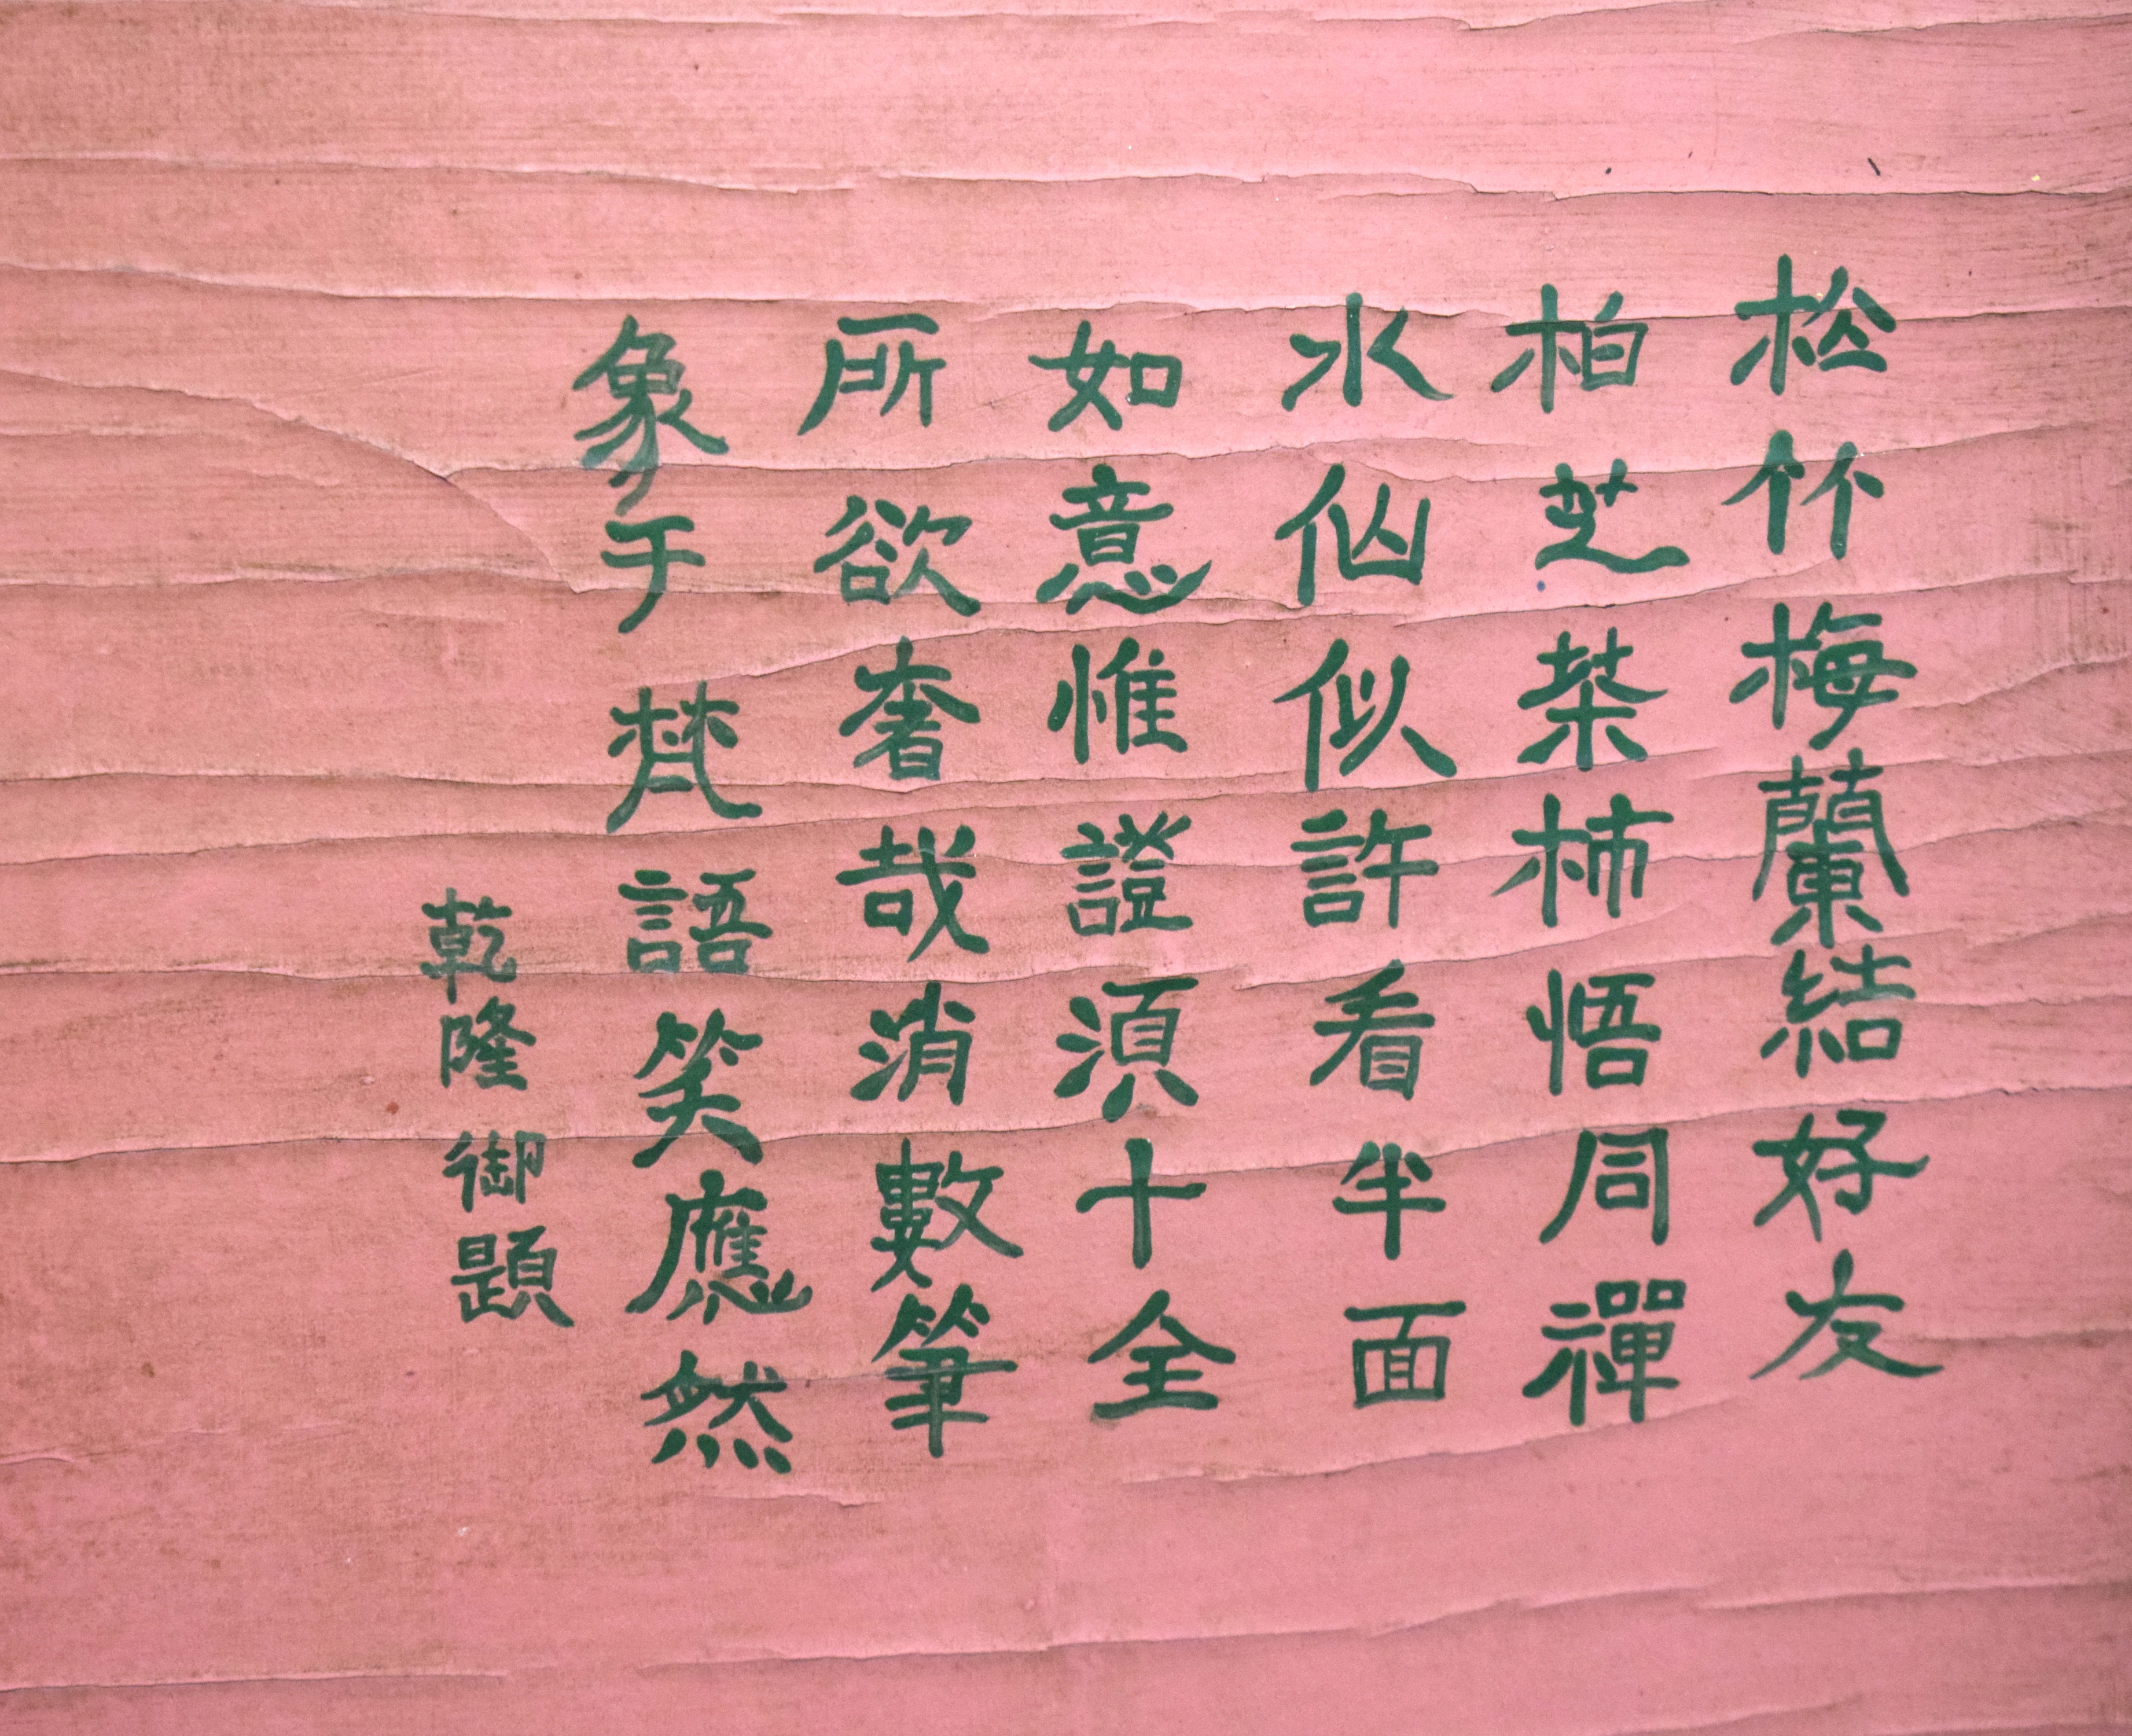 松竹梅蘭結好友
柏芝茶柿悟同禪
水仙似許看半面
如意惟證須十全
所欲奢哉消數筆
象于梵語笑應然
乾隆御題